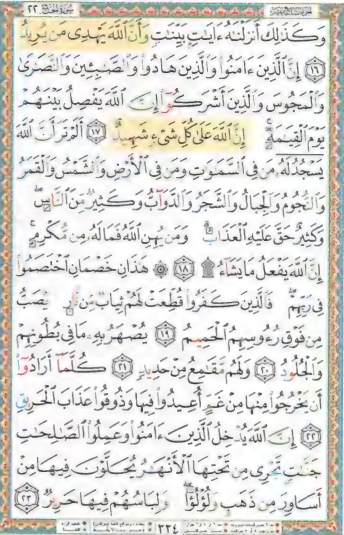 سورة الحج ٢٢
وَكَذَٰلِكَ أَنزَلْنَٰهُ ءَايَٰتٍۭ بَيِّنَٰتٍ وَأَنَّ ٱللَّهَ يَهْدِى مَن يُرِيدُ
١٦ إِنَّ ٱلَّذِينَ ءَامَنُوا۟ وَٱلَّذِينَ هَادُوا۟ وَٱلصَّٰبِـِٔينَ وَٱلنَّصَٰرَىٰ
وَٱلْمَجُوسَ وَٱلَّذِينَ أَشْرَكُوٓا۟ إِنَّ ٱللَّهَ يَفْصِلُ بَيْنَهُمْ
يَوْمَ ٱلْقِيَٰمَةِ ۚ إِنَّ ٱللَّهَ عَلَىٰ كُلِّ شَىْءٍ شَهِيدٌ ١٧ أَلَمْ تَرَ أَنَّ ٱللَّهَ
يَسْجُدُ لَهُۥ مَن فِى ٱلسَّمَٰوَٰتِ وَمَن فِى ٱلْأَرْضِ وَٱلشَّمْسُ وَٱلْقَمَرُ
وَٱلنُّجُومُ وَٱلْجِبَالُ وَٱلشَّجَرُ وَٱلدَّوَآبُّ وَكَثِيرٌ مِّنَ ٱلنَّاسِ ۖ
وَكَثِيرٌ حَقَّ عَلَيْهِ ٱلْعَذَابُ ۗ وَمَن يُهِنِ ٱللَّهُ فَمَا لَهُۥ مِن مُّكْرِمٍ ۚ
إِنَّ ٱللَّهَ يَفْعَلُ مَا يَشَآءُ ۩ ١٨ ۞ هَٰذَانِ خَصْمَانِ ٱخْتَصَمُوا۟
فِى رَبِّهِمْ ۖ فَٱلَّذِينَ كَفَرُوا۟ قُطِّعَتْ لَهُمْ ثِيَابٌ مِّن نَّارٍ يُصَبُّ
مِن فَوْقِ رُءُوسِهِمُ ٱلْحَمِيمُ ١٩ يُصْهَرُ بِهِۦ مَا فِى بُطُونِهِمْ
وَٱلْجُلُودُ ٢٠ وَلَهُم مَّقَٰمِعُ مِنْ حَدِيدٍ ٢١ كُلَّمَآ أَرَادُوٓا۟
أَن يَخْرُجُوا۟ مِنْهَا مِنْ غَمٍّ أُعِيدُوا۟ فِيهَا وَذُوقُوا۟ عَذَابَ ٱلْحَرِيقِ
٢٢ إِنَّ ٱللَّهَ يُدْخِلُ ٱلَّذِينَ ءَامَنُوا۟ وَعَمِلُوا۟ ٱلصَّٰلِحَٰتِ
جَنَّٰتٍ تَجْرِى مِن تَحْتِهَا ٱلْأَنْهَٰرُ يُحَلَّوْنَ فِيهَا مِنْ
أَسَاوِرَ مِن ذَهَبٍ وَلُؤْلُؤًا ۖ وَلِبَاسُهُمْ فِيهَا حَرِيرٌ ٢٣
٣٣٤